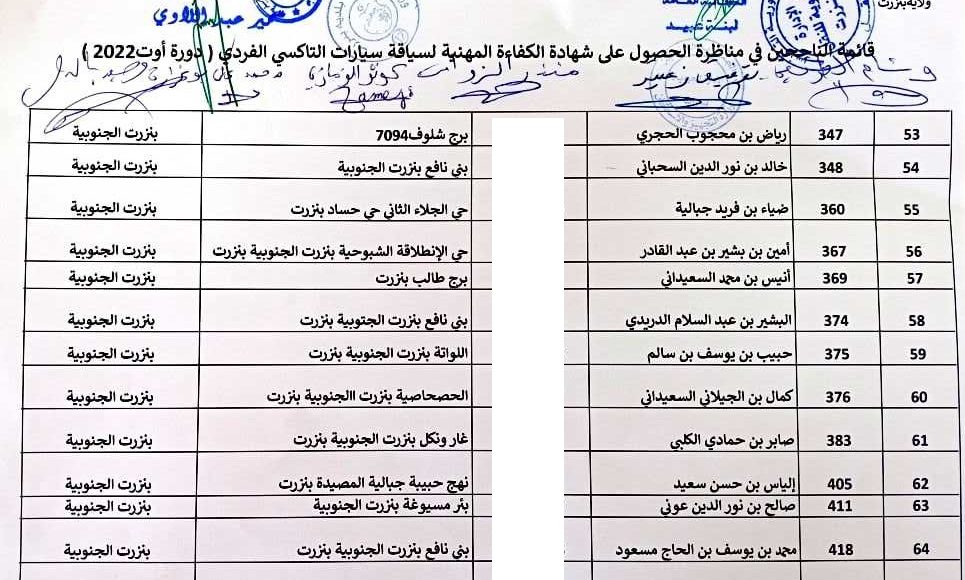 ولاية بنزرت
قائمة الناجحين في مناظرة الحصول على شهادة الكفاءة المهنية لسياقة سيارات التاكسي الفردي ( دورة أوت2022 )
53 347 رياض بن محجوب الحجري برج شلوف7094 بنزرت الجنوبية
54 348 خالد بن نور الدين السحباني بني نافع بنزرت الجنوبية بنزرت الجنوبية
55 360 ضياء بن فريد جبالية حي الجلاء الثاني حي حساد بنزرت بنزرت الجنوبية
56 367 أمين بن بشير بن عبد القادر حي الإنطلاقة الشبوحية بنزرت الجنوبية بنزرت بنزرت الجنوبية
57 369 أنيس بن محمد السعيداني برج طالب بنزرت بنزرت الجنوبية
58 374 البشير بن عبد السلام الدريدي بني نافع بنزرت الجنوبية بنزرت بنزرت الجنوبية
59 375 حبيب بن يوسف بن سالم اللواتة بنزرت الجنوبية بنزرت بنزرت الجنوبية
60 376 كمال بن الجيلاني السعيداني الحصحاصية بنزرت االجنوبية بنزرت بنزرت الجنوبية
61 383 صابر بن حمادي الكلبي غار ونكل بنزرت الجنوبية بنزرت بنزرت الجنوبية
62 405 إلياس بن حسن سعيد نهج حبيبة جبالية المصيدة بنزرت بنزرت الجنوبية
63 411 صالح بن نور الدين عوني بئر مسيوغة بنزرت الجنوبية بنزرت الجنوبية
64 418 محمد بن يوسف بن الحاج مسعود بني نافع بنزرت الجنوبية بنزرت بنزرت الجنوبية